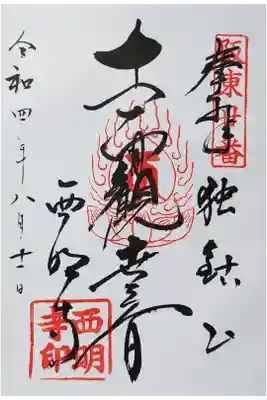 坂東二十番
奉拝 独鈷山
十一面観世音
西明寺
令和四年八月十一日
西明寺印